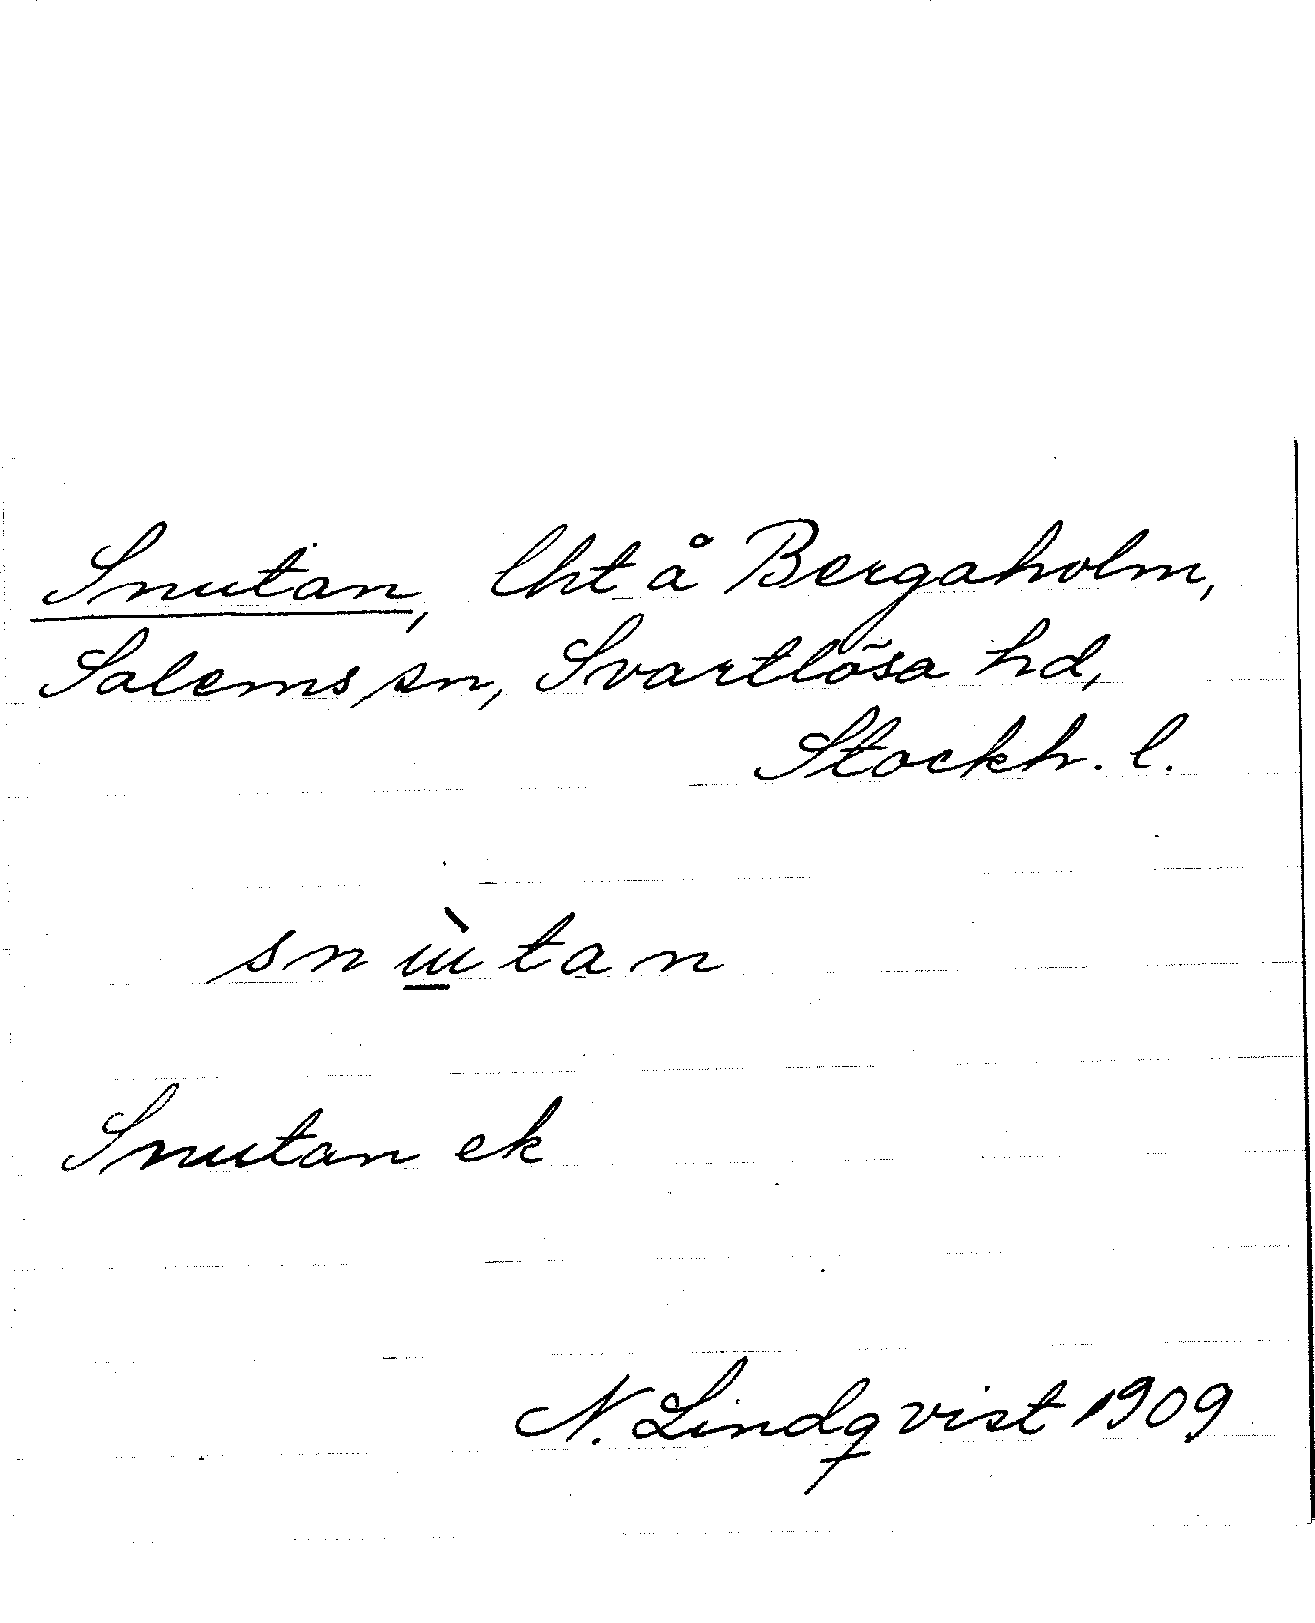 Snutan, lht å Bergaholm,
Salems sn, Svartlösa hd,
Stockh. l.
snɯ̀tan
Snutan ek
N. Lindqvist 1909